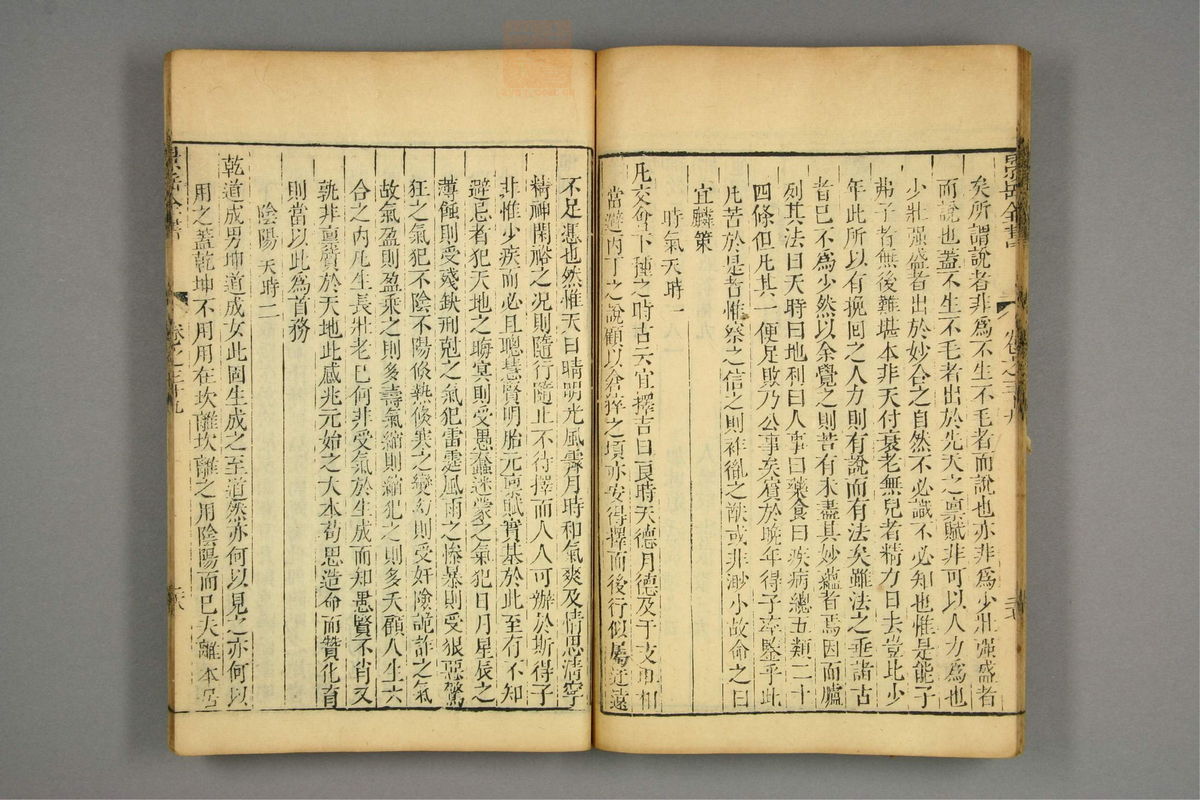 矣所謂說者非爲不生不毛者而說也亦非爲少壯强盛者
而說也蓋不生不毛者出於先天之禀賦非可以人力爲也
少壯强盛者出於妙合之自然不必識不必知也惟是能子
弗子者無後難堪本非天付衰老無兒者精力日去豈比少
年此所以有挽回之人力則有說而有法矣雖法之垂諸古
者已不爲少然以余覺之則苦有未盡其妙蘊者焉因而臚
列其法曰天時曰地利曰人事曰藥食曰疾病總五類二十
四條但凡其一便足敗乃公事矣余於晩年得子率鑒乎此
凡苦於是者惟察之信之則祚胤之猷或非渺小故命之曰
宜麟策
時氣天時一
凡交會下種之時古云宜擇吉日良時天德月德及干支旺相
當避丙丁之說顧以倉猝之頃亦安得擇而後行似屬迂遠
不足憑也然惟天日晴明光風霽月時和氣爽及情思淸寧
精神閑裕之況則隨行隨止不待擇而人人可辦於斯得子
非惟少疾而必且聰慧賢明胎元禀賦實基於此至有不知
避忌者犯天地之晦冥則受愚蠢迷蒙之氣犯日月星辰之
薄蝕則受殘缺刑尅之氣犯雷霆風雨之慘暴則受狠惡驚
狂之氣犯不陰不陽倐熱倐寒之變幻則受奸險詭詐之氣
故氣盈則盈乘之則多壽氣縮則縮犯之則多夭顧人生六
合之內凡生長壯老已何非受氣於生成而知愚賢不肖又
孰非禀質於天地此感兆元始之大本苟思造命而贊化育
則當以此爲首務
陰陽 天時二
乾道成男坤道成女此固生成之至道然亦何以見之亦何以
用之蓋乾坤不用用在坎離坎離之用陰陽而已夫離本
景岳全書
卷之三十九